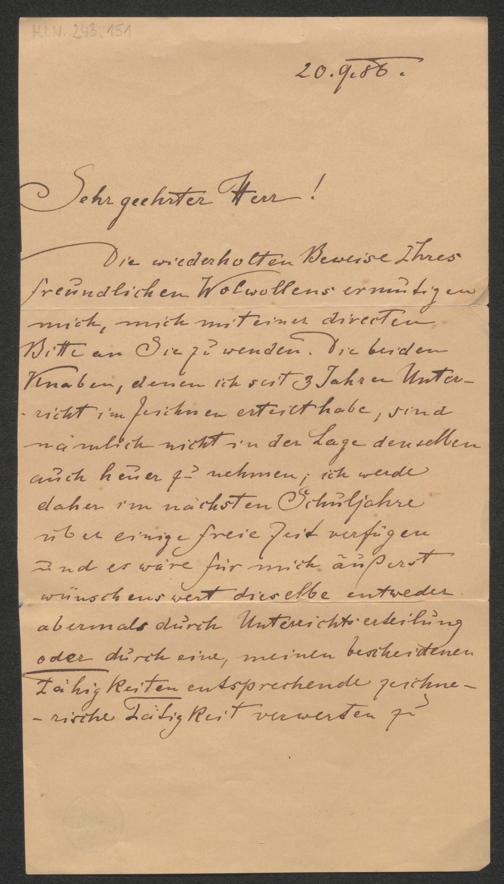 H.I.N. 243.151
20.9.86.
Sehr geehrter Herr!
Die wiederholten Beweise Ihres
freundlichen Wolwollens ermutigen
mich, mich mit einer directen
Bitte an Sie zu wenden. Die beiden
Knaben, denen ich seit 3 Jahren Unter-
-richt im Zeichnen erteilt habe, sind
nämlich nicht in der Lage denselben
auch heuer zu nehmen; ich werde
daher im nächsten Schuljahre
über einige freie Zeit verfügen
und es wäre für mich äußerst
wünschenswert dieselbe entweder
abermals durch Unterrichtserteilung
oder durch eine, meinen bescheidenen
Fähigkeiten entsprechende zeichne-
-rische Tätigkeit verwerten zu